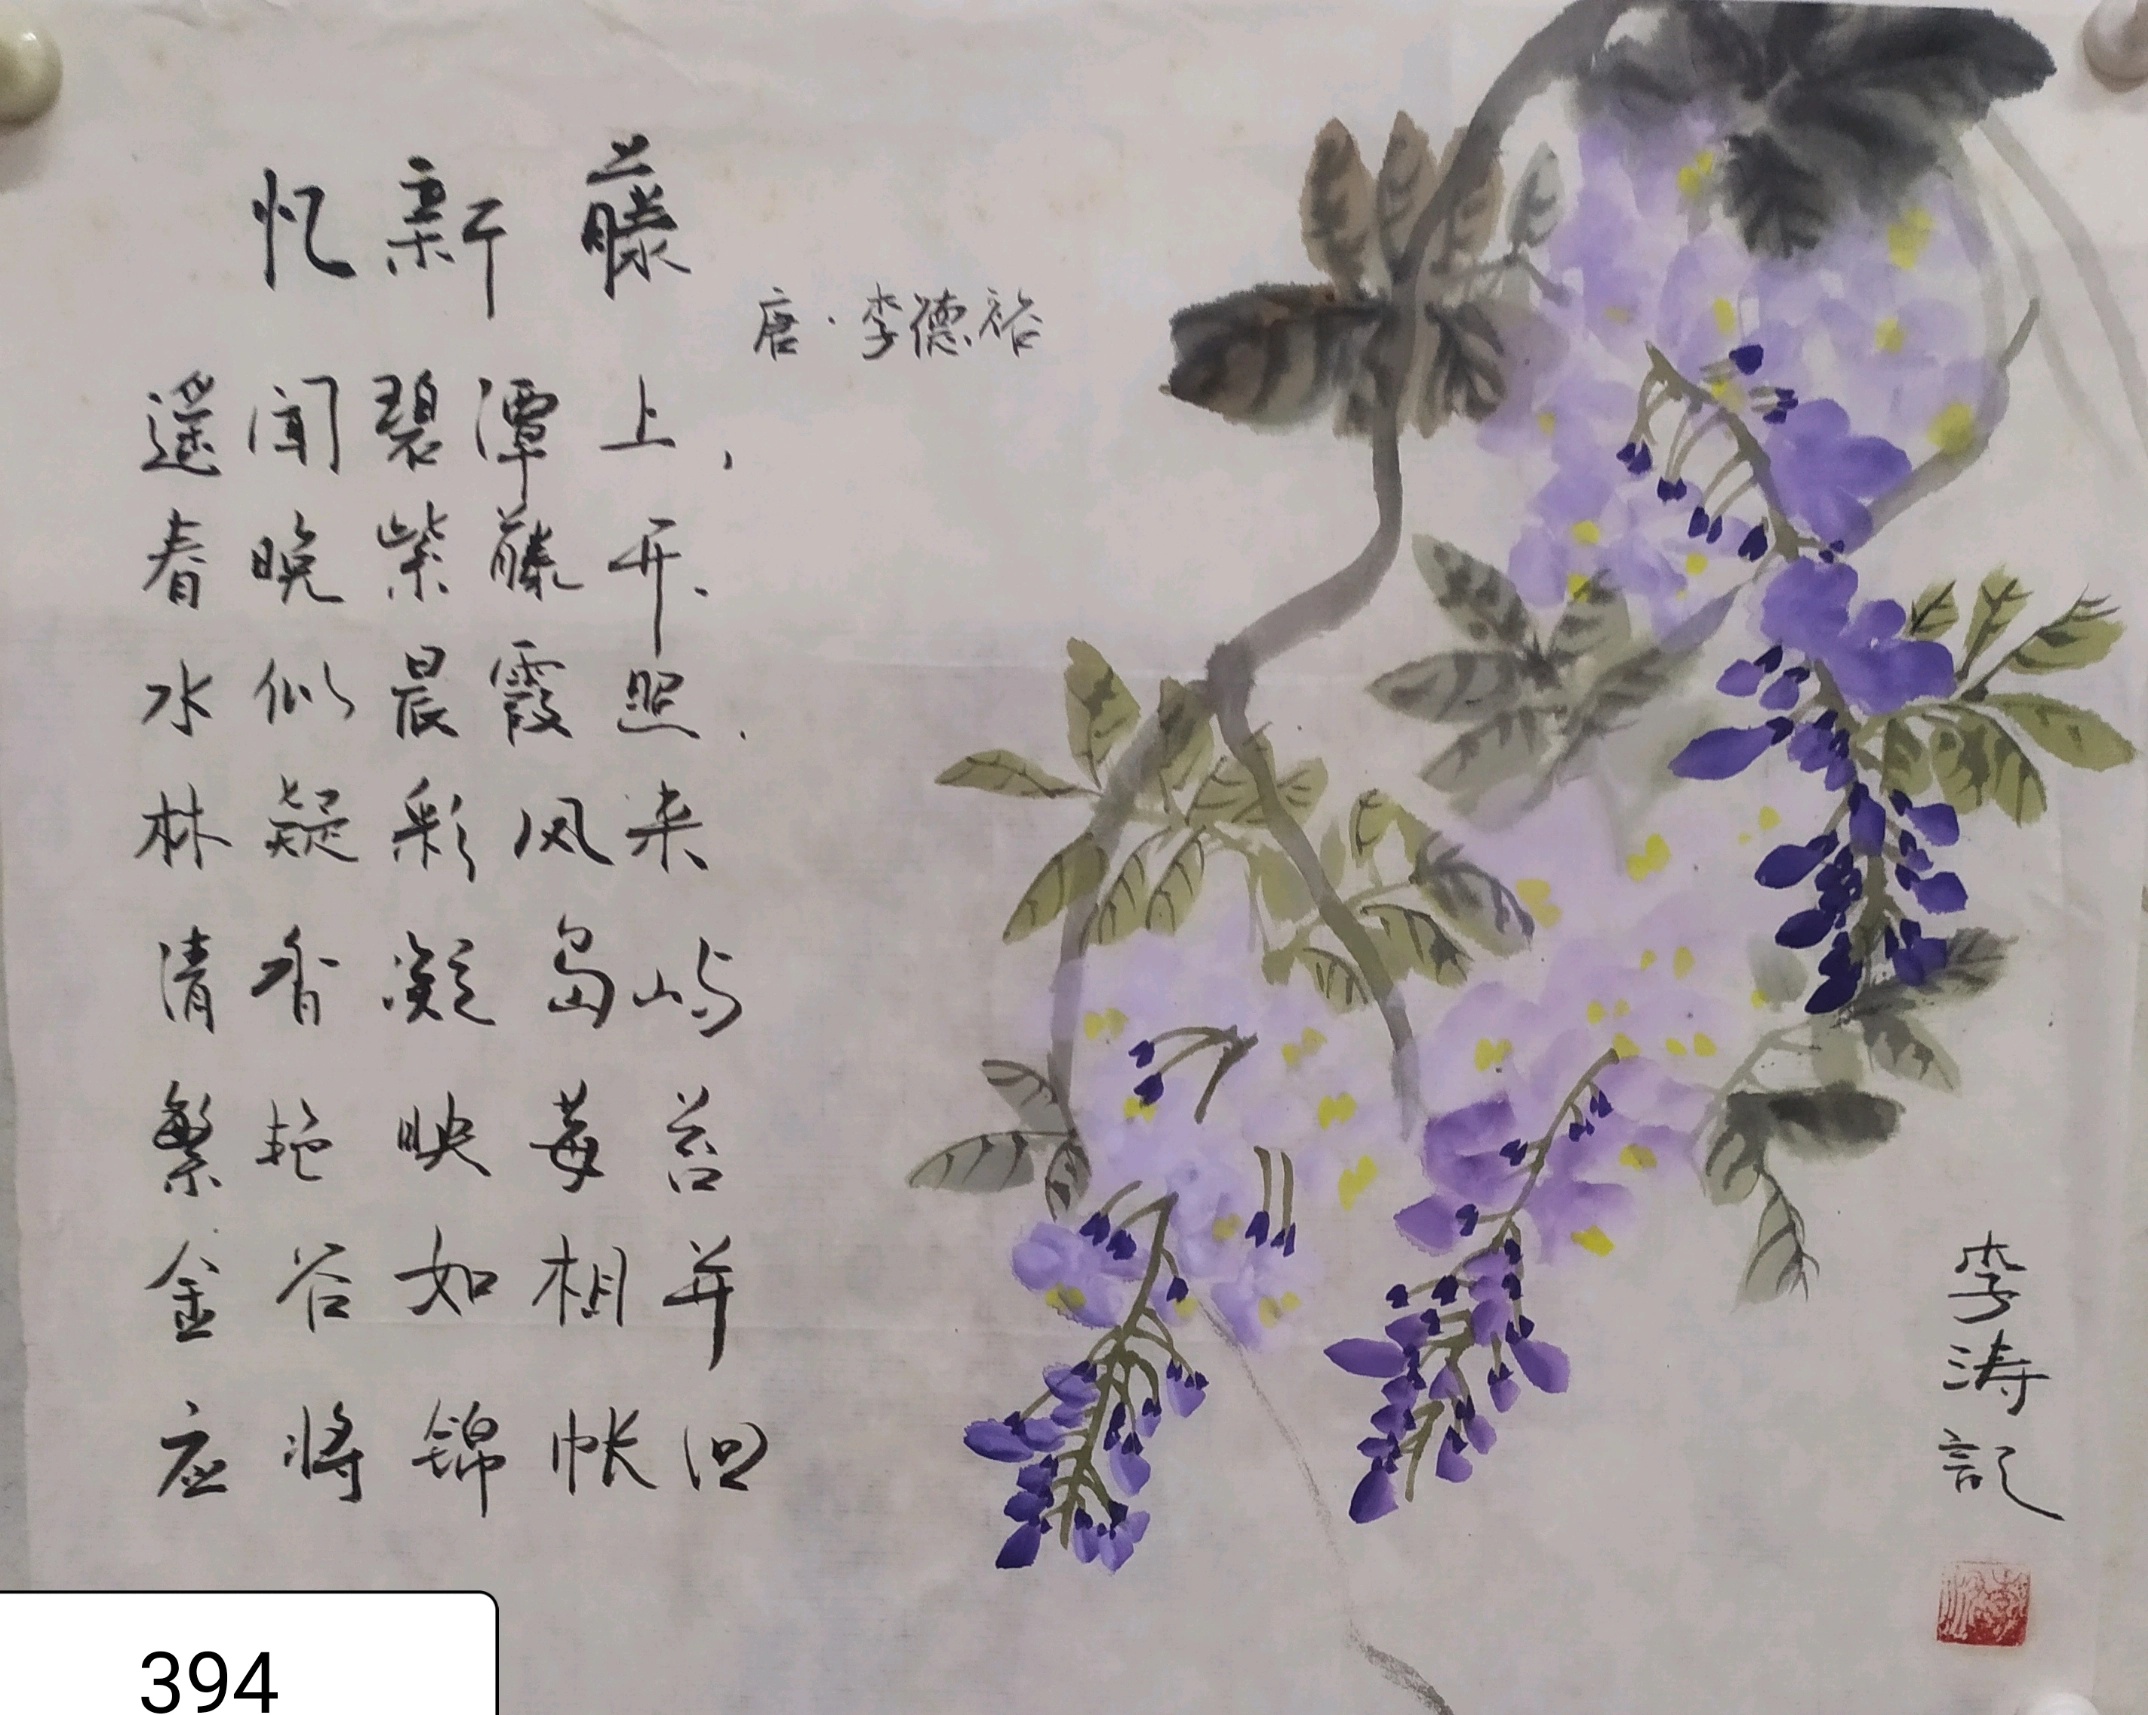 忆新藤
唐·李德裕
遥闻碧潭上，
春晚紫藤开、
水似晨霞照．
林疑彩凤来
清香凝岛屿
繁艳映莓苔
金谷如相并
应将锦帐回
李涛記
394